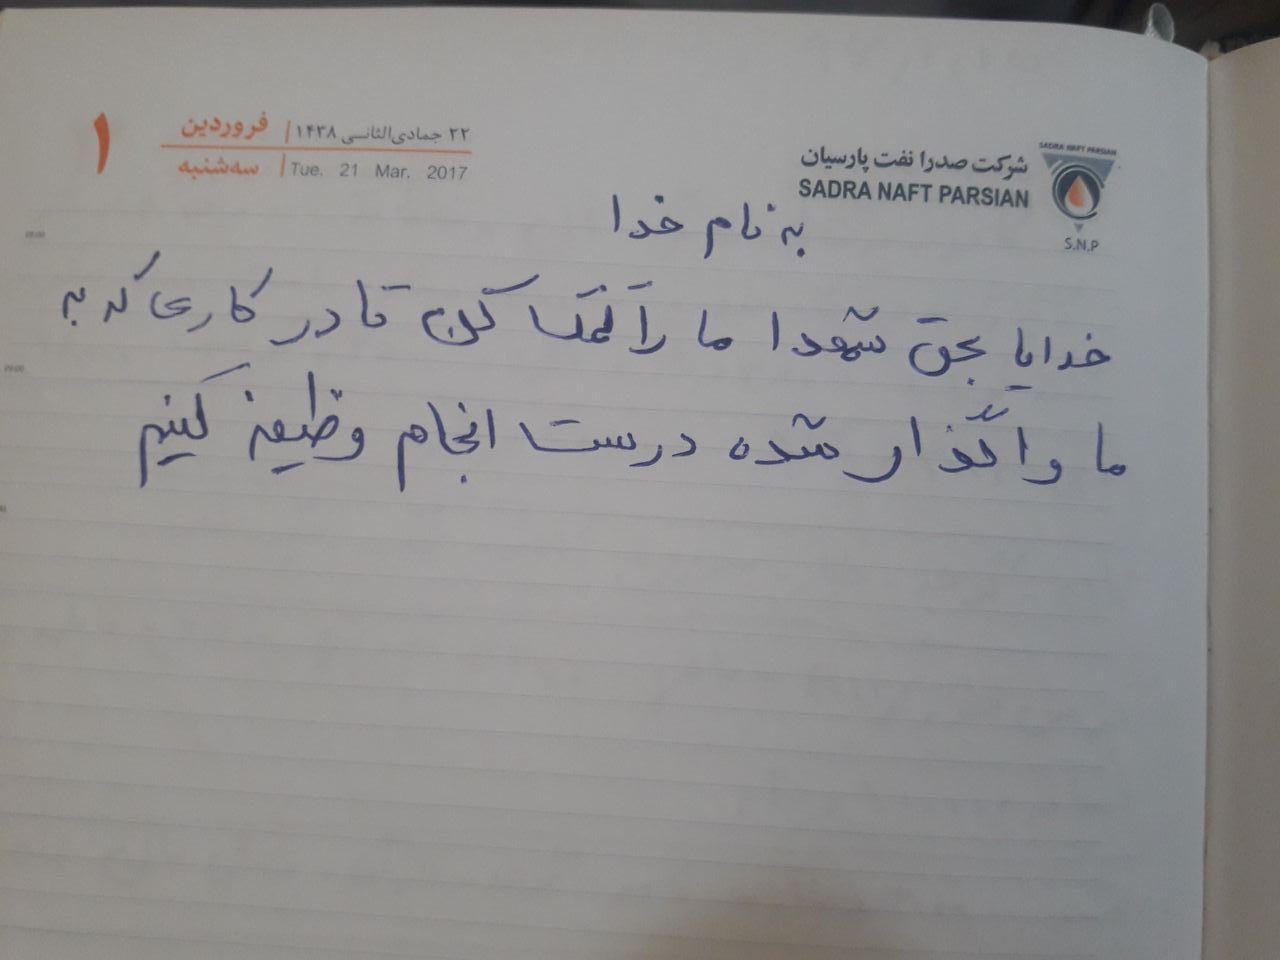 ۱
فروردین | ۲۲ جمادی‌الثانی ۱۴۳۸
سه‌شنبه | Tue. 21 Mar. 2017
SADRA NAFT PARSIAN
شرکت صدرا نفت پارسیان
SADRA NAFT PARSIAN
S.N.P
به نام خدا
خدایا بحق شهدا ما را کمک کن تا در کاری که به
ما واگذار شده درست انجام وظیفه کنیم